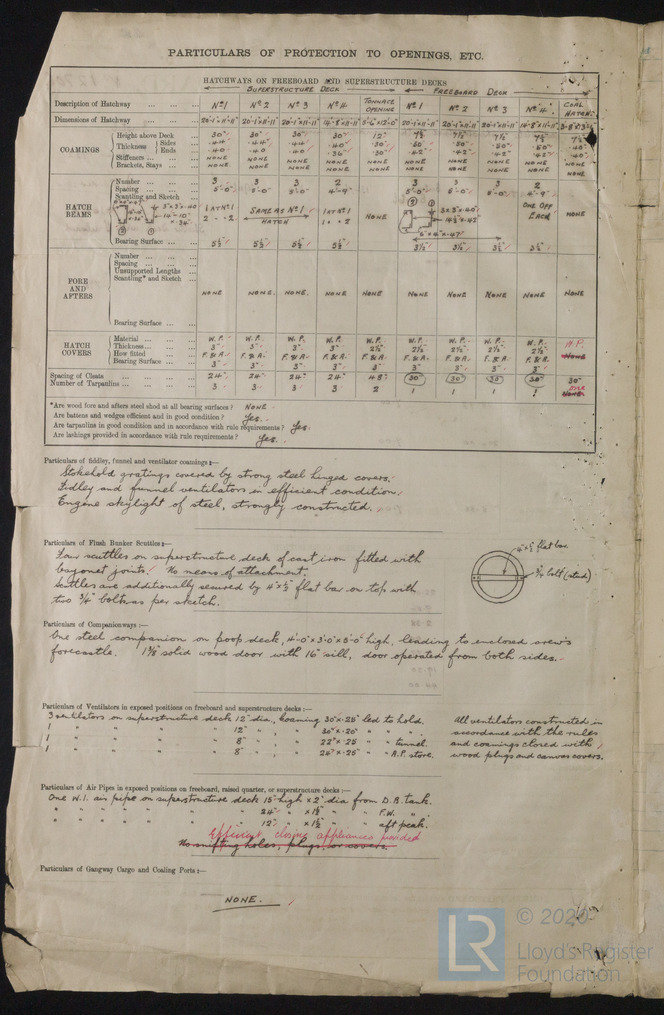 PARTICULARS OF PROTECTION TO OPENINGS, ETC.
HATCHWAYS ON FREEBOARD AND SUPERSTRUCTURE DECKS
SUPERSTRUCTURE DECK FREEBOARD DECK
Description of Hatchway ... Nº1 Nº 2 Nº 3 Nº 4 TONNAGE OPENING Nº 1 Nº 2 Nº 3 Nº 4 COAL HATCH
Dimensions of Hatchway ... 20'-1"×11'-11" 20'-1"×11'-11" 20'-1"×11'-11" 14'-8"×11'-11" 20'-1"×11'-11" 20'-1"×11'-11" 20'-1"×11'-11" 14'-8"×11'-11"
COAMINGS
Height above Deck 30" 30" 30" 30" 12" 7½ 7½" 7½ 7½ 7½
Thickness Sides .44 .44" .44" .40" .30 .50 .50" .50 .50 .40
Ends .40 .40 .40 .36 .30 .42 .42 .42 .42 .40
Stiffeners ... NONE NONE NONE NONE NONE NONE NONE NONE NONE NONE
Brackets, Stays ... NONE NONE NONE NONE NONE NONE NONE NONE NONE NONE
HATCH BEAMS
Number ... 3 3 3 2 3 3 3 2
Spacing ... 5'-0" 5'-0" 5'-0" 4'-9" 5'-0" 5'-0" 5'-0" 4'-9"
Scantling and Sketch
1 AT Nº1 SAME AS Nº1 HATCH 1 AT Nº1 NONE 3×3×.40 ONE OFF EACH NONE
Bearing Surface ... 5½ 5½ 5½ 5½ 3½ 3½ 3½ 3½
FORE AND AFTERS
Number ...
Spacing ...
Unsupported Lengths ...
Scantling* and Sketch ...
NONE NONE. NONE. NONE NONE NONE NONE NONE NONE NONE
Bearing Surface ...
HATCH COVERS
Material ... W.P. W.P. W.P. W.P. W.P. W.P. W.P. W.P. W.P. W.P.
Thickness ... 3" 3" 3" 3" 2½" 2½ 2½ 2½ 2½ NONE
How fitted ... F. & A. F. & A. F. & A. F. & A. F. & A. F. & A. F. & A. F. & A. F. & A.
Bearing Surface ... 3" 3" 3" 3" 3" 3" 3" 3" 3"
Spacing of Cleats ... 24" 24" 24" 24" 48" 30" 30" 30" 30" 30"
Number of Tarpaulins ... 3 3 3 3 2 1 1 1 1 NONE one
*Are wood fore and afters steel shod at all bearing surfaces? NONE
Are battens and wedges efficient and in good condition? Yes.
Are tarpaulins in good condition and in accordance with rule requirements? Yes.
Are lashings provided in accordance with rule requirements? Yes.
Particulars of fiddley, funnel and ventilator coamings:—
Stokehold gratings covered by strong steel hinged covers.
Fidley and funnel ventilators in efficient condition.
Engine skylight of steel, strongly constructed.
Particulars of Flush Bunker Scuttles:—
Four scuttles on superstructure deck of cast iron fitted with
bayonet joints. No means of attachment.
Scuttles are additionally secured by 4"×½" flat bar on top with
two ¾" bolts as per sketch.
4"×½" flat bar.
¾ bolt (stud)
Particulars of Companionways:—
One steel companion on poop deck, 4'-0"×3'-0"×5'-0" high, leading to enclosed crew's
forecastle. 1⅜" solid wood door with 16" sill, door operated from both sides.
Particulars of Ventilators in exposed positions on freeboard and superstructure decks:—
3 ventilators on superstructure deck 12" dia., Coaming 30"×.25" led to hold.
1 " " " " 12" " " 30"×.20" " " "
1 " " " " 8" " " 22"×.25 " " tunnel.
1 " " " " 8" " " 24"×.25 " " A.P. store.
All ventilators constructed in
accordance with the rules
and coamings closed with
wood plugs and canvas covers.
Particulars of Air Pipes in exposed positions on freeboard, raised quarter, or superstructure decks:—
One W.I. air pipe on superstructure deck 15" high × 2" dia from D.B. tank.
" " " " " " 24" " × 1½" " " F.W. "
" " " " " " 12" " × 1½" " " aft peak.
Efficient closing appliances provided
No snifting holes, plugs, or covers.
Particulars of Gangway Cargo and Coaling Ports:—
NONE.
LR
© 2020
Lloyd's Register
Foundation